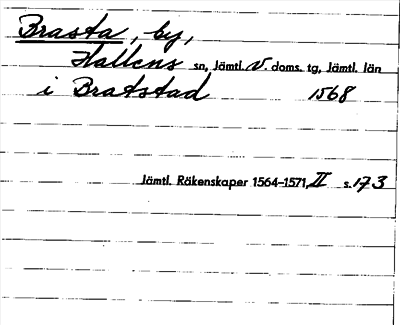 Brasta, by,
Hallens sn, Jämtl. V. doms. tg, Jämtl. län
i Bratstad 1568
Jämtl. Räkenskaper 1564-1571, II s. 173